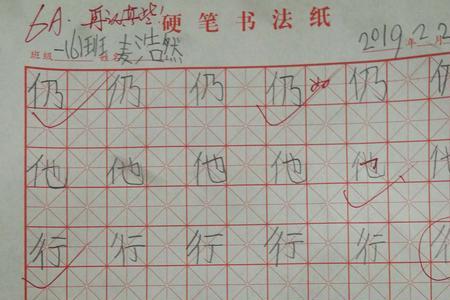 6A. 再认真些! 硬笔书法纸
班级 一161班 姓名 麦浩然 2019年2月2
仍 仍 仍 仍 仍 仍
他 他 他 他 他 他
行 行 行 行 行 行